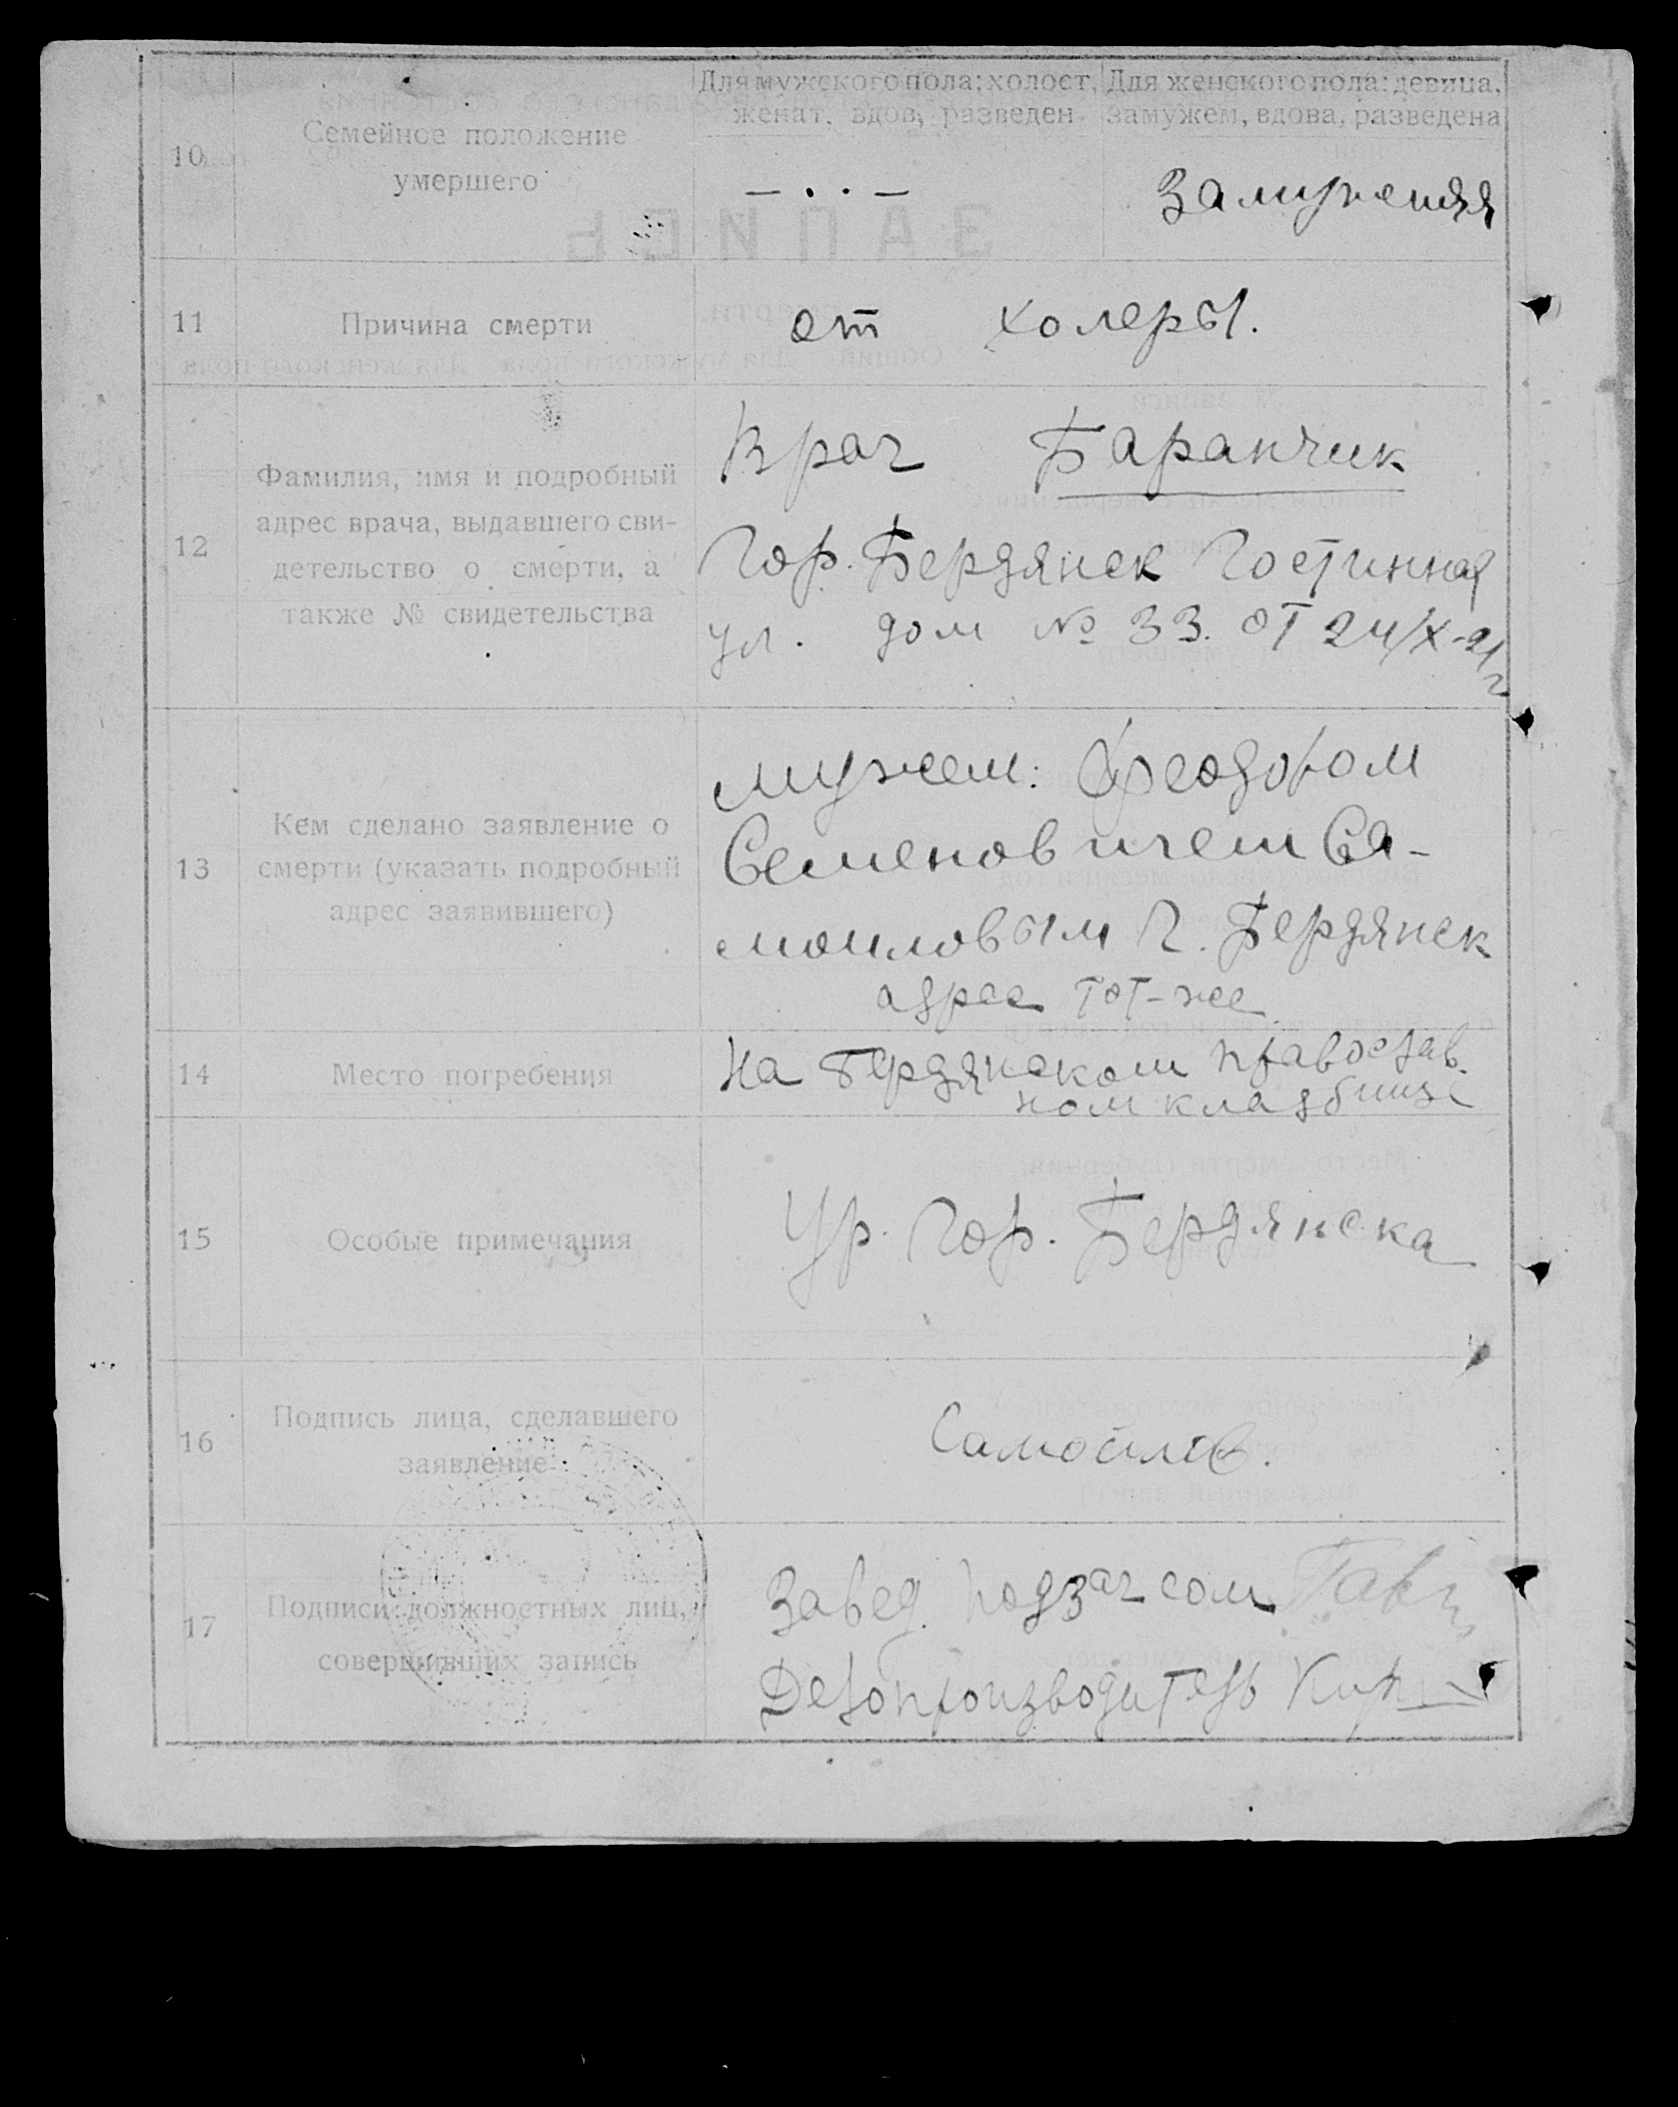 Для мужского пола: холост, женат, вдов, разведен
Для женского пола: девица, замужем, вдова, разведена
10
Семейное положение
умершего
— . . —
Замужняя
11
Причина смерти
от холеры.
12
Фамилия, имя и подробный
адрес врача, выдавшего сви-
детельство о смерти, а
также № свидетельства
Врач Баранчик
Гор. Бердянск Гостинная
ул. дом № 33. от 24/X-21 г
13
Кем сделано заявление о
смерти (указать подробный
адрес заявившего)
мужем: Феодором
Семеновичем Са-
моиловым г. Бердянск
адрес тот-же
14
Место погребения
На Бердянском православ.
ном кладбище
15
Особые примечания
Ур. Гор. Бердянска
16
Подпись лица, сделавшего
заявление
Самойлов.
17
Подписи должностных лиц,
совершивших запись
Завед. подзагсом
Делопроизводитель